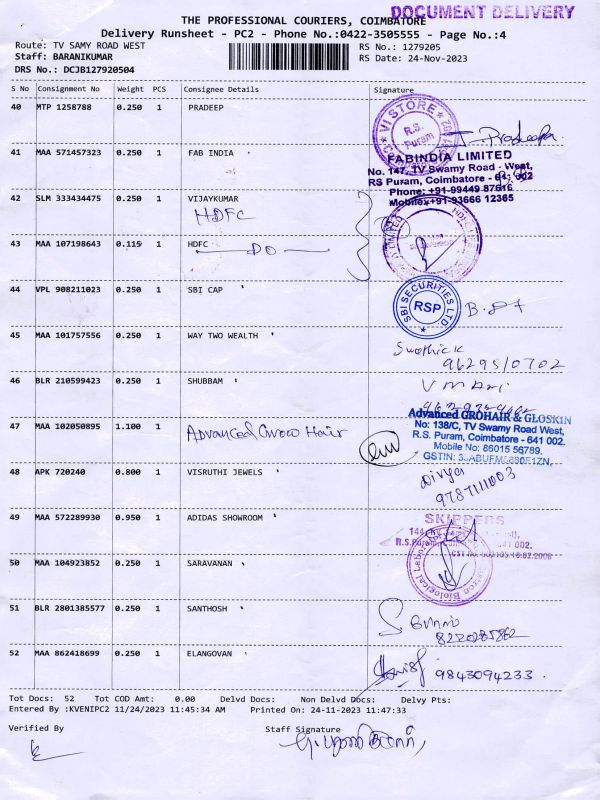 DOCUMENT DELIVERY
THE PROFESSIONAL COURIERS, COIMBATORE
Delivery Runsheet - PC2 - Phone No.:0422-3505555 - Page No.:4
Route: TV SAMY ROAD WEST
RS No.: 1279205
Staff: BARANIKUMAR
RS Date: 24-Nov-2023
DRS No.: DCJB127920504
S No Consignment No Weight PCS Consignee Details Signature
40 MTP 1258788 0.250 1 PRADEEP
VI STORE
R.S. Puram
J. Pradeepa
41 MAA 571457323 0.250 1 FAB INDIA
FABINDIA LIMITED
No. 147, TV Swamy Road - West,
RS Puram, Coimbatore - 641 002
Phone: +91-99449 87616
Mobile:+91-93666 12365
42 SLM 333434475 0.250 1 VIJAYKUMAR
HDFC
43 MAA 107198643 0.115 1 HDFC
DO
44 VPL 908211023 0.250 1 SBI CAP
SBI SECURITIES LTD.
RSP
45 MAA 101757556 0.250 1 WAY TWO WEALTH
Swathick
9629510702
46 BLR 210599423 0.250 1 SHUBBAM
47 MAA 102050895 1.100 1 Advanced Grow Hair
Advanced GROHAIR & GLOSKIN
No: 138/C, TV Swamy Road West,
R.S. Puram, Coimbatore - 641 002.
Mobile No: 86015 56789.
48 APK 720240 0.800 1 VISRUTHI JEWELS
Divya
9787111003
49 MAA 572289930 0.950 1 ADIDAS SHOWROOM
SKIPPERS
50 MAA 104923852 0.250 1 SARAVANAN
51 BLR 2801385577 0.250 1 SANTHOSH
52 MAA 862418699 0.250 1 ELANGOVAN
9843094233
Tot Docs: 52 Tot COD Amt: 0.00 Delvd Docs: Non Delvd Docs: Delvy Pts:
Entered By :KVENIPC2 11/24/2023 11:45:34 AM Printed On: 24-11-2023 11:47:33
Verified By Staff Signature